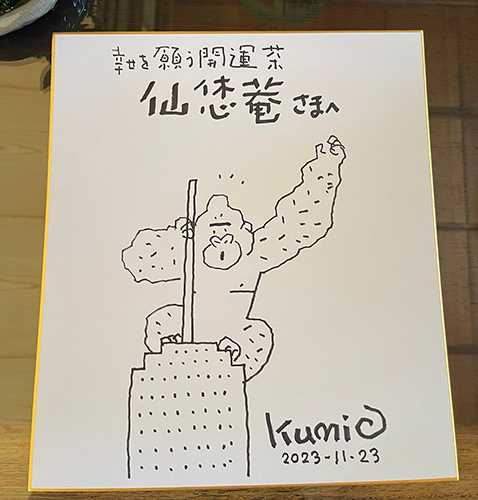 幸せを願う開運菜
仙悠菴さまへ
Kunio
2023-11-23